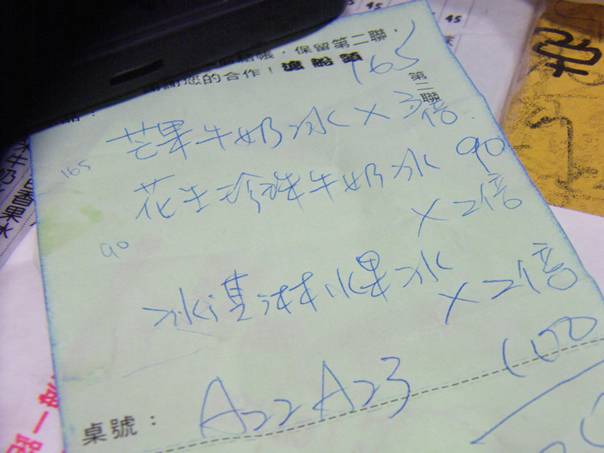 保留第二聯，
您的合作！ 港船頭
第二聯
165
芒果牛奶冰 × 3倍
165
花生珍珠牛奶冰 90
× 2倍
90
冰淇淋水果冰
× 2倍
100
桌號： A22 A23